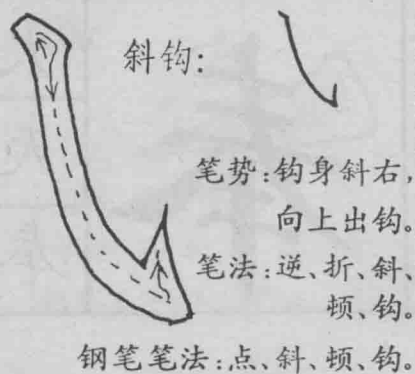 斜钩：
笔势：钩身斜右，
向上出钩。
笔法：逆、折、斜、
顿、钩。
钢笔笔法：点、斜、顿、钩。